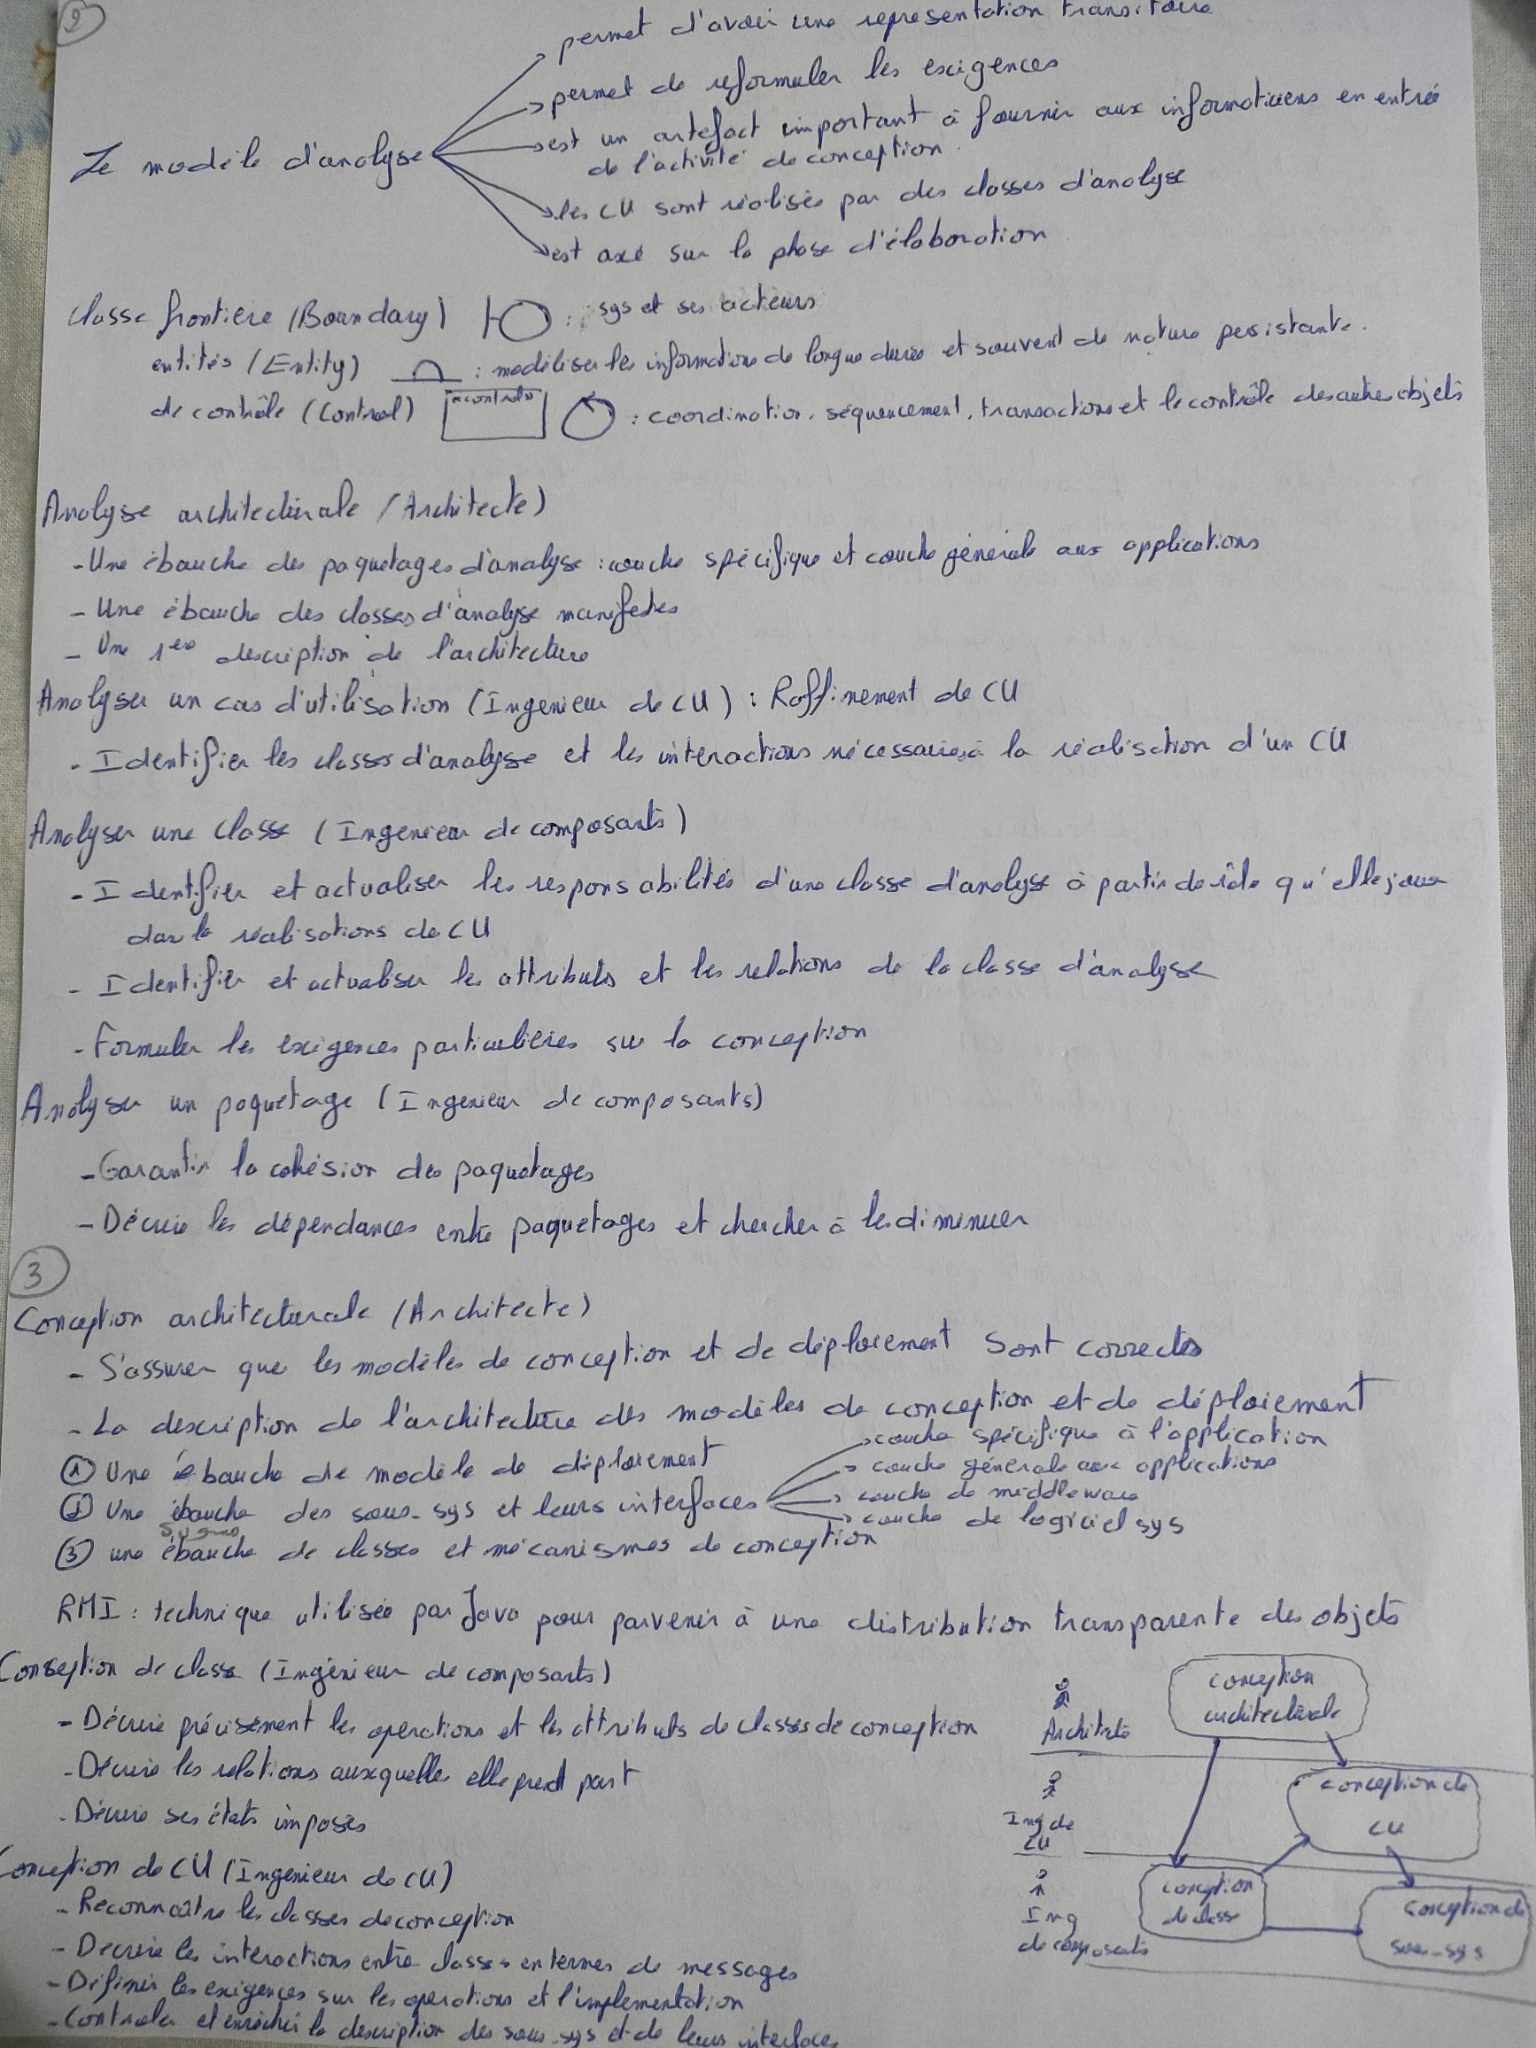 2
permet d'avoir une representation transitoire
permet de reformuler les exigences
Le modèle d'analyse
est un artefact important à fournir aux informaticiens en entrée
de l'activité de conception.
les CU sont réalisés par des classes d'analyse
est axé sur la phase d'élaboration
classe frontiere (Boundary) : sys et ses acteurs
entités (Entity) : modéliser les informations de longue durée et souvent de nature persistante.
de contrôle (Control) : coordination, séquencement, transactions et le contrôle des autres objets
Analyse architecturale (Architecte)
- Une ébauche des paquetages d'analyse : couche spécifique et couche générale aux applications
- Une ébauche des classes d'analyse manifestes
- Une 1ere description de l'architecture
Analyser un cas d'utilisation (Ingenieur de CU) : Raffinement de CU
- Identifier les classes d'analyse et les interactions nécessaires à la réalisation d'un CU
Analyser une classe (Ingenieur de composants)
- Identifier et actualiser les responsabilités d'une classe d'analyse à partir de rôle qu'elle joue
dans la réalisations de CU
- Identifier et actualiser les attributs et les relations de la classe d'analyse
- Formuler les exigences particulières sur la conception
Analyser un paquetage (Ingenieur de composants)
- Garantir la cohésion des paquetages
- Décrire les dépendances entre paquetages et chercher à les diminuer
3
Conception architecturale (Architecte)
- S'assurer que les modèles de conception et de déploiement sont corrects
- La description de l'architecture des modèles de conception et de déploiement
① Une ébauche de modèle de déploiement
② Une ébauche des sous-sys et leurs interfaces
couche spécifique à l'application
couche générale aux applications
couche de middleware
couche de logiciel sys
③ une ébauche de classes et mécanismes de conception
RMI : technique utilisée par Java pour parvenir à une distribution transparente des objets
Conception de classe (Ingénieur de composants)
- Décrire précisément les operations et les attributs de classes de conception
- Décrire les relations auxquelles elle prend part
- Décrire ses états imposés
Conception de CU (Ingenieur de CU)
- Reconnaître les classes de conception
- Decrire les interactions entre classes en termes de messages
- Définir les exigences sur les operations et l'implementation
- Controler et enrichir la description des sous-sys et de leurs interfaces
conception
architecturale
Architecte
conception de
CU
Ing de
CU
conception
de classe
Ing
de composants
conception de
sous-sys